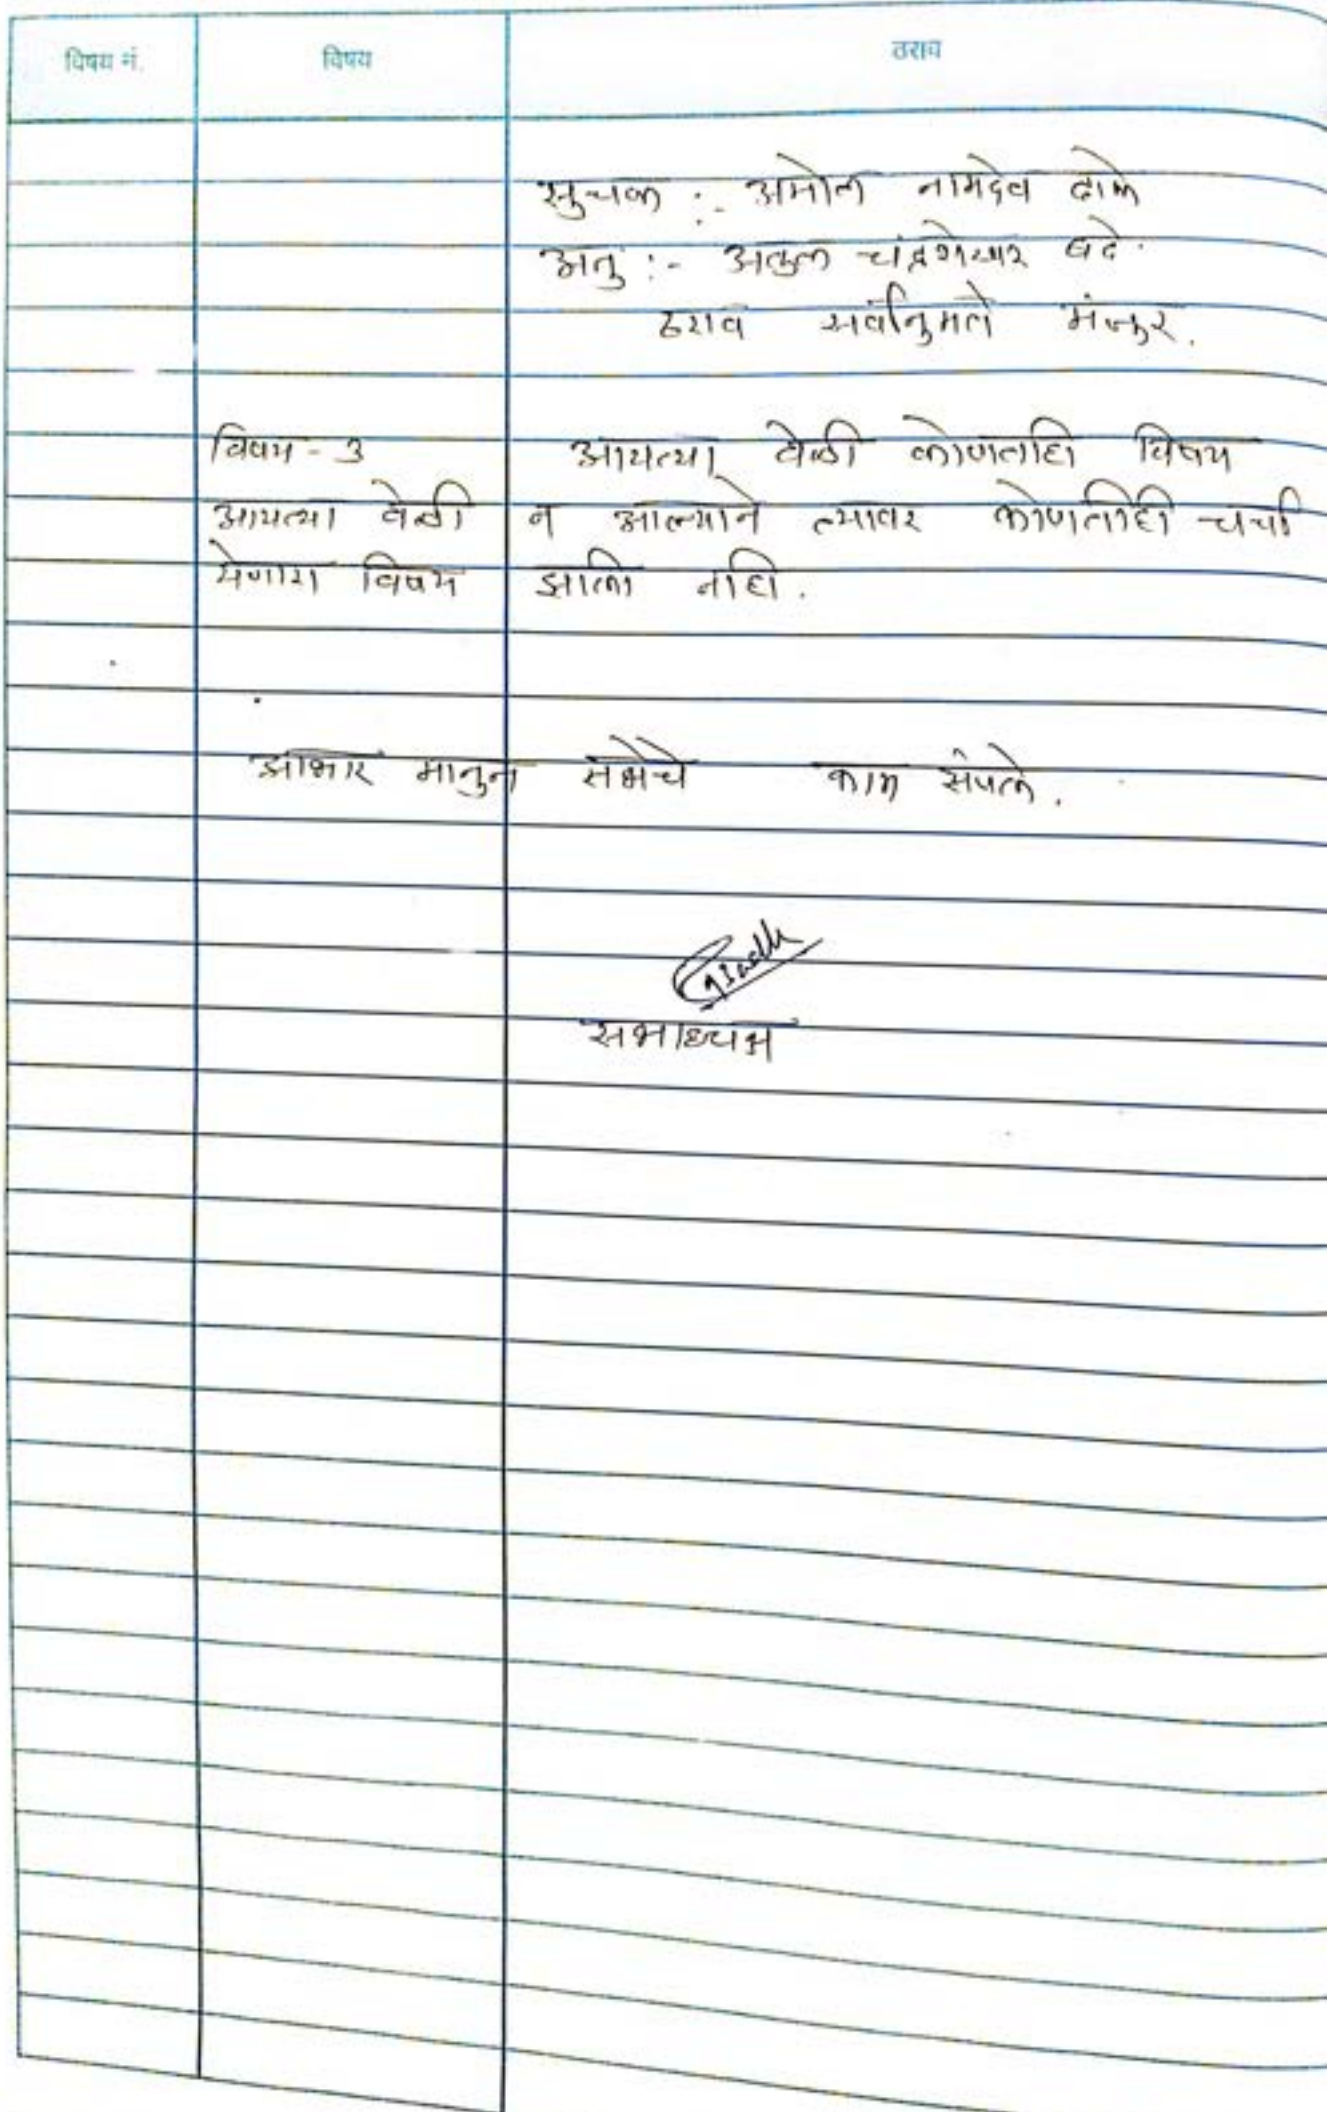 विषय नं. विषय ठराव
सुचक :- अमोल नामदेव ढाके
अनु :- अतुल चंद्रशेखर बढे.
ठराव सर्वानुमते मंजुर.
विषय - 3 आयत्या वेळी कोणताहि विषय
आयत्या वेळी न आल्याने त्यावर कोणतीही चर्चा
येणारा विषय झाली नाही.
आभार मानुन सभेचे काम संपले.
सभाध्यक्ष